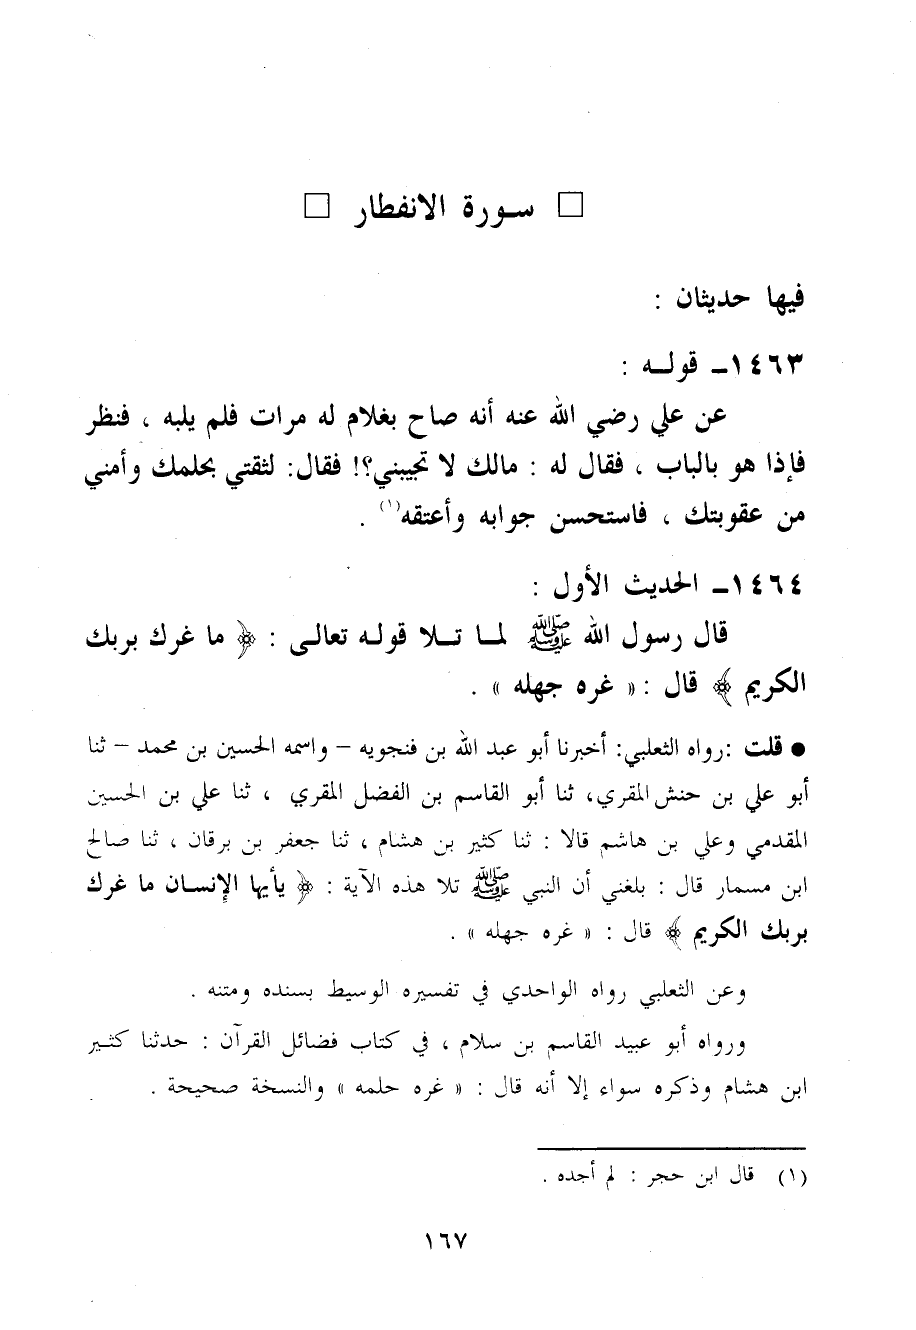 □ سورة الانفطار □
فيها حديثان :
١٤٦٣ـ قولـه :
عن علي رضي الله عنه أنه صاح بغلام له مرات فلم يلبه ، فنظر
فإذا هو بالباب ، فقال له : مالك لا تجيبني؟! فقال: لثقتي بحلمك وأمني
من عقوبتك ، فاستحسن جوابه وأعتقه(١) .
١٤٦٤ـ الحديث الأول :
قال رسول الله ﷺ لمـا تـلا قولـه تعالـى : ﴿ ما غرك بربك
الكريم ﴾ قال : « غره جهله » .
● قلت :رواه الثعلبي: أخبرنا أبو عبد الله بن فنجويه – واسمه الحسين بن محمد – ثنا
أبو علي بن حنش المقري، ثنا أبو القاسم بن الفضل المقري ، ثنا علي بن الحسين
المقدمي وعلي بن هاشم قالا : ثنا كثير بن هشام ، ثنا جعفر بن برقان ، ثنا صالح
ابن مسمار قال : بلغني أن النبي ﷺ تلا هذه الآية : ﴿ يأيها الإنسان ما غرك
بربك الكريم ﴾ قال : « غره جهله » .
وعن الثعلبي رواه الواحدي في تفسيره الوسيط بسنده ومتنه .
ورواه أبو عبيد القاسم بن سلام ، في كتاب فضائل القرآن : حدثنا كثـير
ابن هشام وذكره سواء إلا أنه قال : « غره حلمه » والنسخة صحيحة .
(١) قال ابن حجر : لم أجده .
١٦٧